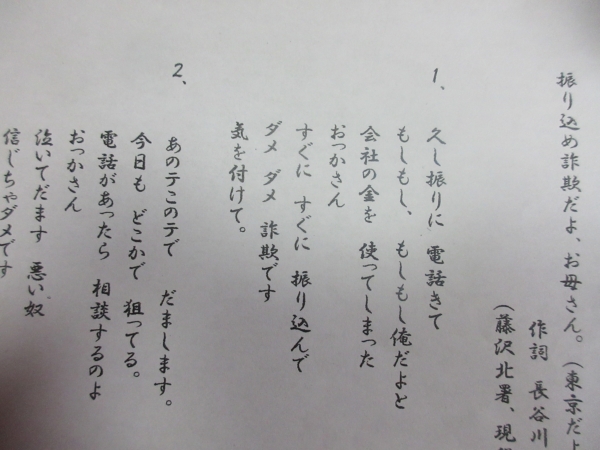 振り込め詐欺だよ、お母さん。(東京だよ
作詞 長谷川
(藤沢北署、現
1、
久し振りに 電話きて
もしもし、もしもし俺だよと
会社の金を 使ってしまった
おっかさん
すぐに すぐに 振り込んで
ダメ ダメ 詐欺です
気を付けて。
2、
あのテこのテで だまします。
今日も どこかで 狙ってる。
電話があったら 相談するのよ
おっかさん
泣いてだます 悪い奴
信じちゃダメです